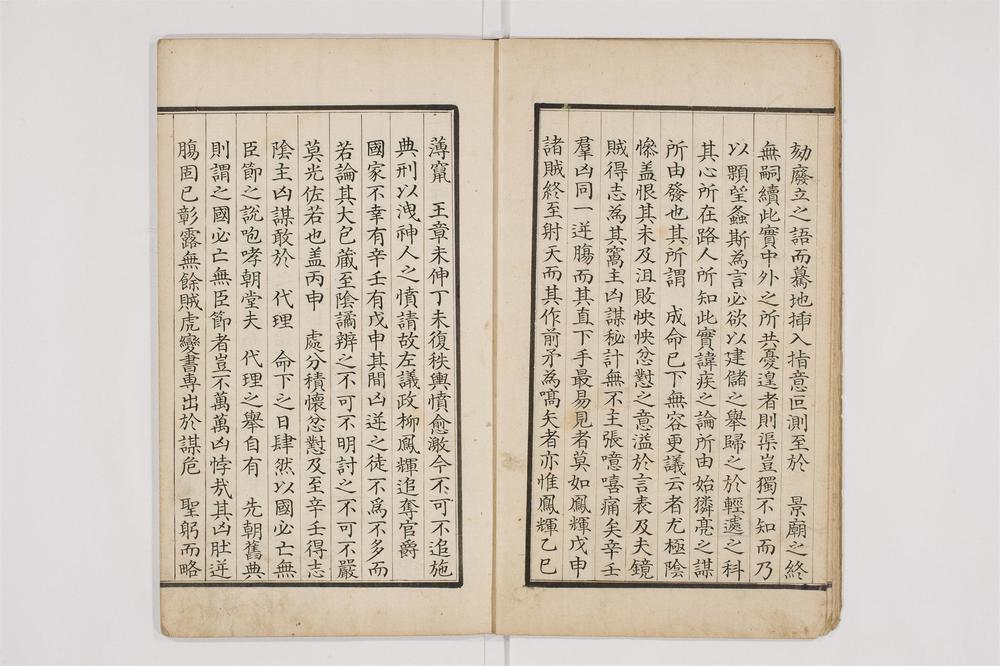 劾廢立之語而驀地揷入指意叵測至於　景廟之終
無嗣續此實中外之所共憂遑者則渠豈獨不知而乃
以顆望螽斯為言必欲以建儲之舉歸之於輕遽之科
其心所在路人所知此實諱疾之論所由始獜亮之謀
所由發也其所謂　成命已下無容更議云者尤極陰
慘盖恨其未及沮敗怏怏忿懟之意溢於言表及夫鏡
賊得志為其窩主凶謀秘計無不主張噫嘻痛矣辛壬
羣凶同一逆膓而其直下手最易見者莫如鳳輝戊申
諸賊終至射天而其作前矛為嚆矢者亦惟鳳輝乙巳
薄竄　王章未伸丁未復秩輿憤愈激今不可不追施
典刑以洩神人之憤請故左議政柳鳳輝追奪官爵
國家不幸有辛壬有戊申其間凶逆之徒不為不多而
若論其大包藏至陰譎辨之不可不明討之不可不嚴
莫光佐若也盖丙申　處分積懷忿懟及至辛壬得志
陰主凶謀敢於　代理　命下之日肆然以國必亡無
臣節之說咆哮朝堂夫　代理之舉自有　先朝舊典
則謂之國必亡無臣節者豈不萬萬凶悖㢤其凶肚逆
膓固已彰露無餘賊虎變書專出於謀危　聖躬而略